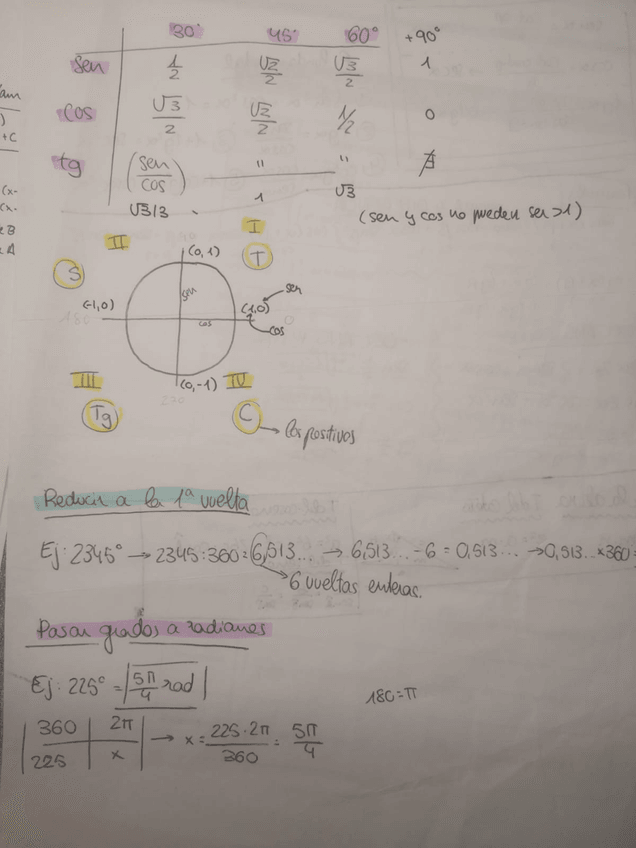 30° 45° 60° +90°
Sen 1/2 √2/2 √3/2 1
Cos √3/2 √2/2 1/2 0
tg (sen/cos) " " ∄
√3/3 1 √3
(sen y cos no pueden ser >1)
II I
(0,1) T
S
sen
(-1,0) (1,0) sen
cos cos
III (0,-1) IV
270
Tg C → los positivos
Reducir a la 1ª vuelta
Ej: 2345° → 2345:360 = 6,513... → 6,513... - 6 = 0,513... → 0,513... × 360 =
6 vueltas enteras.
Pasar grados a radianes
Ej: 225° = 5π/4 rad
180 = π
360 2π
225 x → x = 225·2π/360 = 5π/4